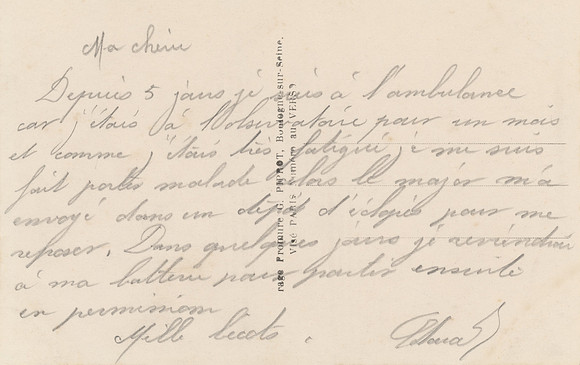 Ma chérie
Depuis 5 jours je suis à l'ambulance
car j'étais à l'observatoire pour un mois
et comme j'étais très fatigué je me suis
fait porter malade alors le major m'a
envoyé dans un dépôt d'éclopés pour me
reposer. Dans quelques jours je reviendrai
à ma batterie pour partir ensuite
en permission
Mille bécots.
Imprimeur G. PICROT, Boulogne-sur-Seine.
VISÉ PARIS Numéro au VERSO